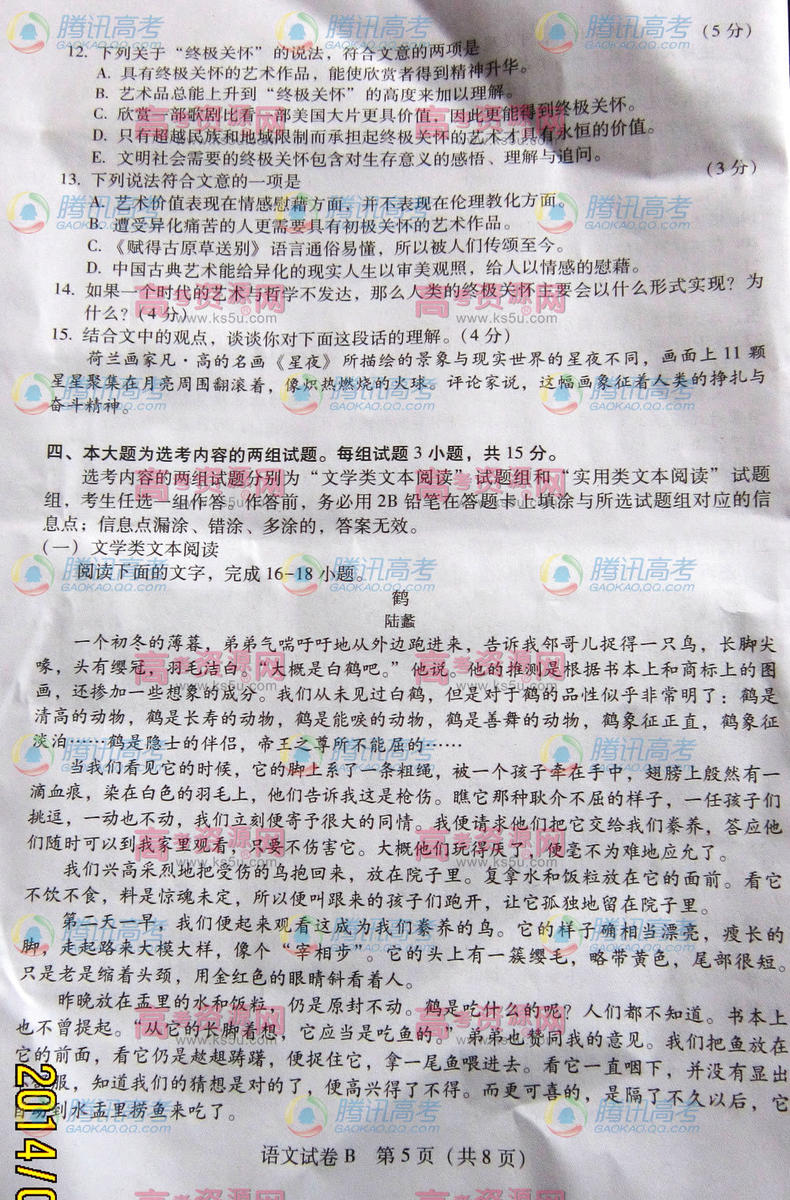 (5分)
12. 下列关于“终极关怀”的说法，符合文意的两项是
A. 具有终极关怀的艺术作品，能使欣赏者得到精神升华。
B. 艺术品总能上升到“终极关怀”的高度来加以理解。
C. 欣赏一部歌剧比看一部美国大片更具价值，因此更能得到终极关怀。
D. 只有超越民族和地域限制而承担起终极关怀的艺术才具有永恒的价值。
E. 文明社会需要的终极关怀包含对生存意义的感悟、理解与追问。
(3分)
13. 下列说法符合文意的一项是
A. 艺术价值表现在情感慰藉方面，并不表现在伦理教化方面。
B. 遭受异化痛苦的人更需要具有初极关怀的艺术作品。
C. 《赋得古原草送别》语言通俗易懂，所以被人们传颂至今。
D. 中国古典艺术能给异化的现实人生以审美观照，给人以情感的慰藉。
14. 如果一个时代的艺术与哲学不发达，那么人类的终极关怀主要会以什么形式实现？为
什么？(4分)
15. 结合文中的观点，谈谈你对下面这段话的理解。(4分)
荷兰画家凡·高的名画《星夜》所描绘的景象与现实世界的星夜不同，画面上11颗
星星聚集在月亮周围翻滚着，像炽热燃烧的火球。评论家说，这幅画象征着人类的挣扎与
奋斗精神。
四、本大题为选考内容的两组试题。每组试题3小题，共15分。
选考内容的两组试题分别为“文学类文本阅读”试题组和“实用类文本阅读”试题
组，考生任选一组作答。作答前，务必用2B铅笔在答题卡上填涂与所选试题组对应的信
息点；信息点漏涂、错涂、多涂的，答案无效。
(一) 文学类文本阅读
阅读下面的文字，完成16-18小题。
鹤
陆蠡
一个初冬的薄暮，弟弟气喘吁吁地从外边跑进来，告诉我邻哥儿捉得一只鸟，长脚尖
喙，头有缨冠，羽毛洁白。“大概是白鹤吧。”他说。他的推测是根据书本上和商标上的图
画，还掺加一些想象的成分。我们从未见过白鹤，但是对于鹤的品性似乎非常明了：鹤是
清高的动物，鹤是长寿的动物，鹤是能唳的动物，鹤是善舞的动物，鹤象征正直，鹤象征
淡泊……鹤是隐士的伴侣，帝王之尊所不能屈的……
当我们看见它的时候，它的脚上系了一条粗绳，被一个孩子牵在手中，翅膀上殷然有一
滴血痕，染在白色的羽毛上，他们告诉我这是枪伤。瞧它那种耿介不屈的样子，一任孩子们
挑逗，一动也不动，我们立刻便寄予很大的同情。我便请求他们把它交给我们豢养，答应他
们随时可以到我家里观看，只要不伤害它。大概他们玩得厌了，便毫不为难地应允了。
我们兴高采烈地把受伤的鸟抱回来，放在院子里。复拿水和饭粒放在它的面前。看它
不饮不食，料是惊魂未定，所以便叫跟来的孩子们跑开，让它孤独地留在院子里。
第二天一早，我们便起来观看这成为我们豢养的鸟。它的样子确相当漂亮，瘦长的
脚，走起路来大模大样，像个“宰相步”。它的头上有一簇缨毛，略带黄色，尾部很短。
只是老是缩着头颈，用金红色的眼睛斜看着人。
昨晚放在盂里的水和饭粒，仍是原封不动。鹤是吃什么的呢？人们都不知道。书本上
也不曾提起。“从它的长脚着想，它应当是吃鱼的。”弟弟也赞同我的意见。我们把鱼放在
它的前面，看它仍是趑趄踌躇，便捉住它，拿一尾鱼喂进去。看它一直咽下，并没有显出
服，知道我们的猜想是对的了，便高兴得了不得。而更可喜的，是隔了不久以后，它
到水盂里捞鱼来吃了。
语文试卷B 第5页（共8页）
2014/0
腾讯高考
GAOKAO.QQ.COM
高考资源网
www.ks5u.com